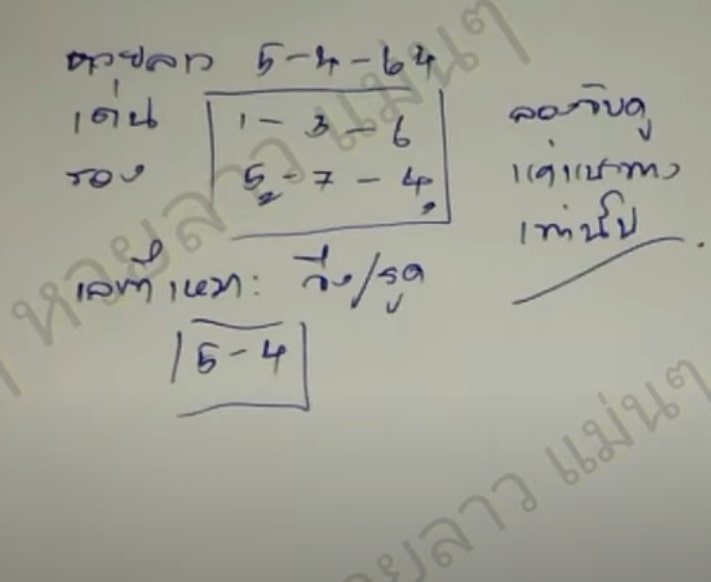 หวยลาว 5-4-64
เด่น 1-3-6
รอง 5-7-4
ลองจับดู
แค่แนวทาง
เท่านั้น
เลขที่เหมาะ: วิ่ง/รูด
5-4
หวยลาว แม่นๆ
หวยลาว แม่นๆ